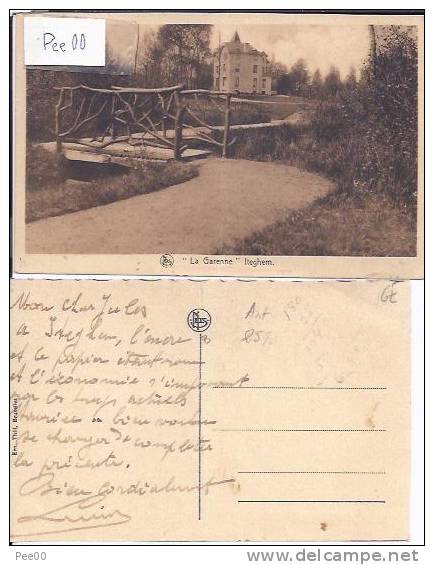 Pee 00
NELS
" La Garenne " Iteghem.
6E
Mon cher Jules
à Iteghem, l'encre
et le papier étant
et l'économie s'imposant
par les temps actuels
bien vouloir
se charger de completer
la présente.
Bien Cordialement
NELS
Ant
Em. Thill, Bruxelles
Pee00
www.delcampe.net